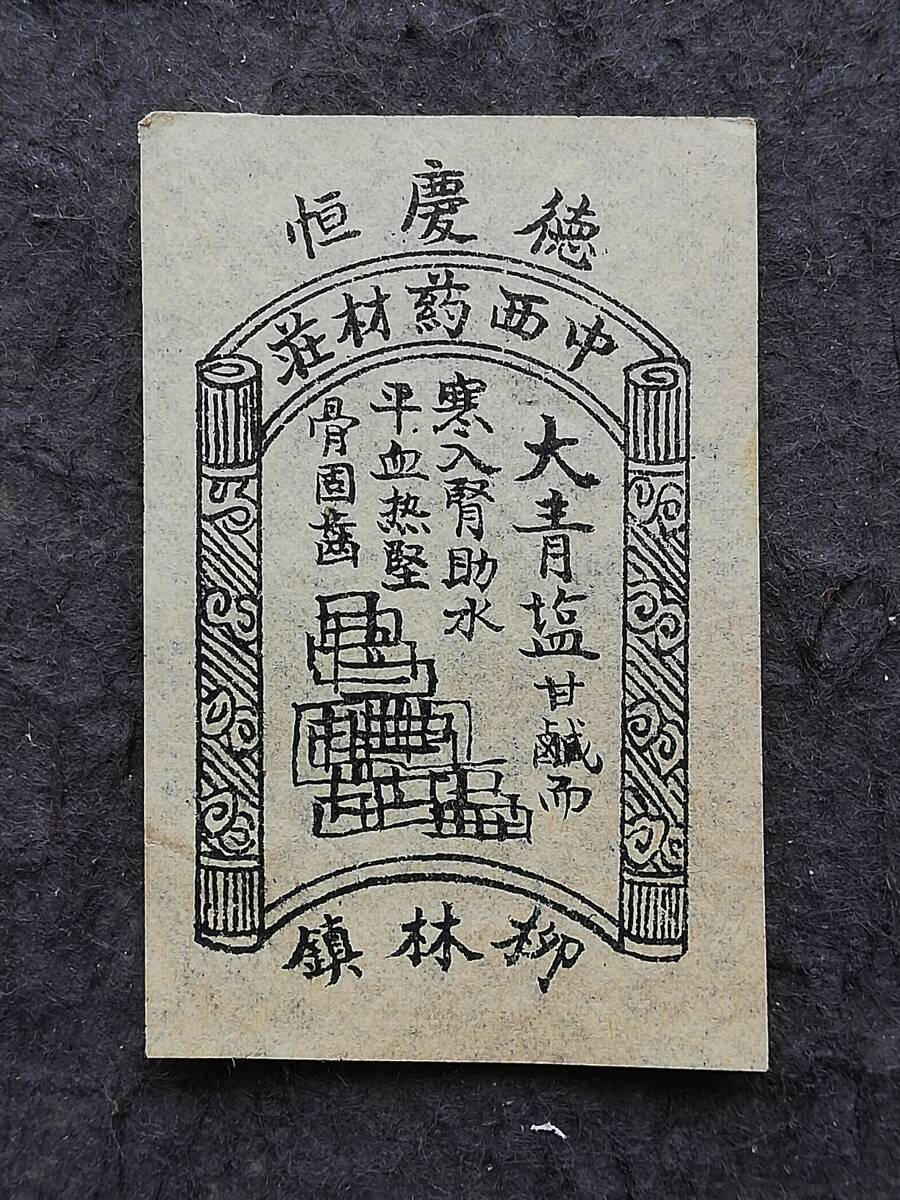 德慶恒
中西葯材莊
大青塩甘鹹而
寒入腎助水
平血热堅
骨固齒
柳林鎮